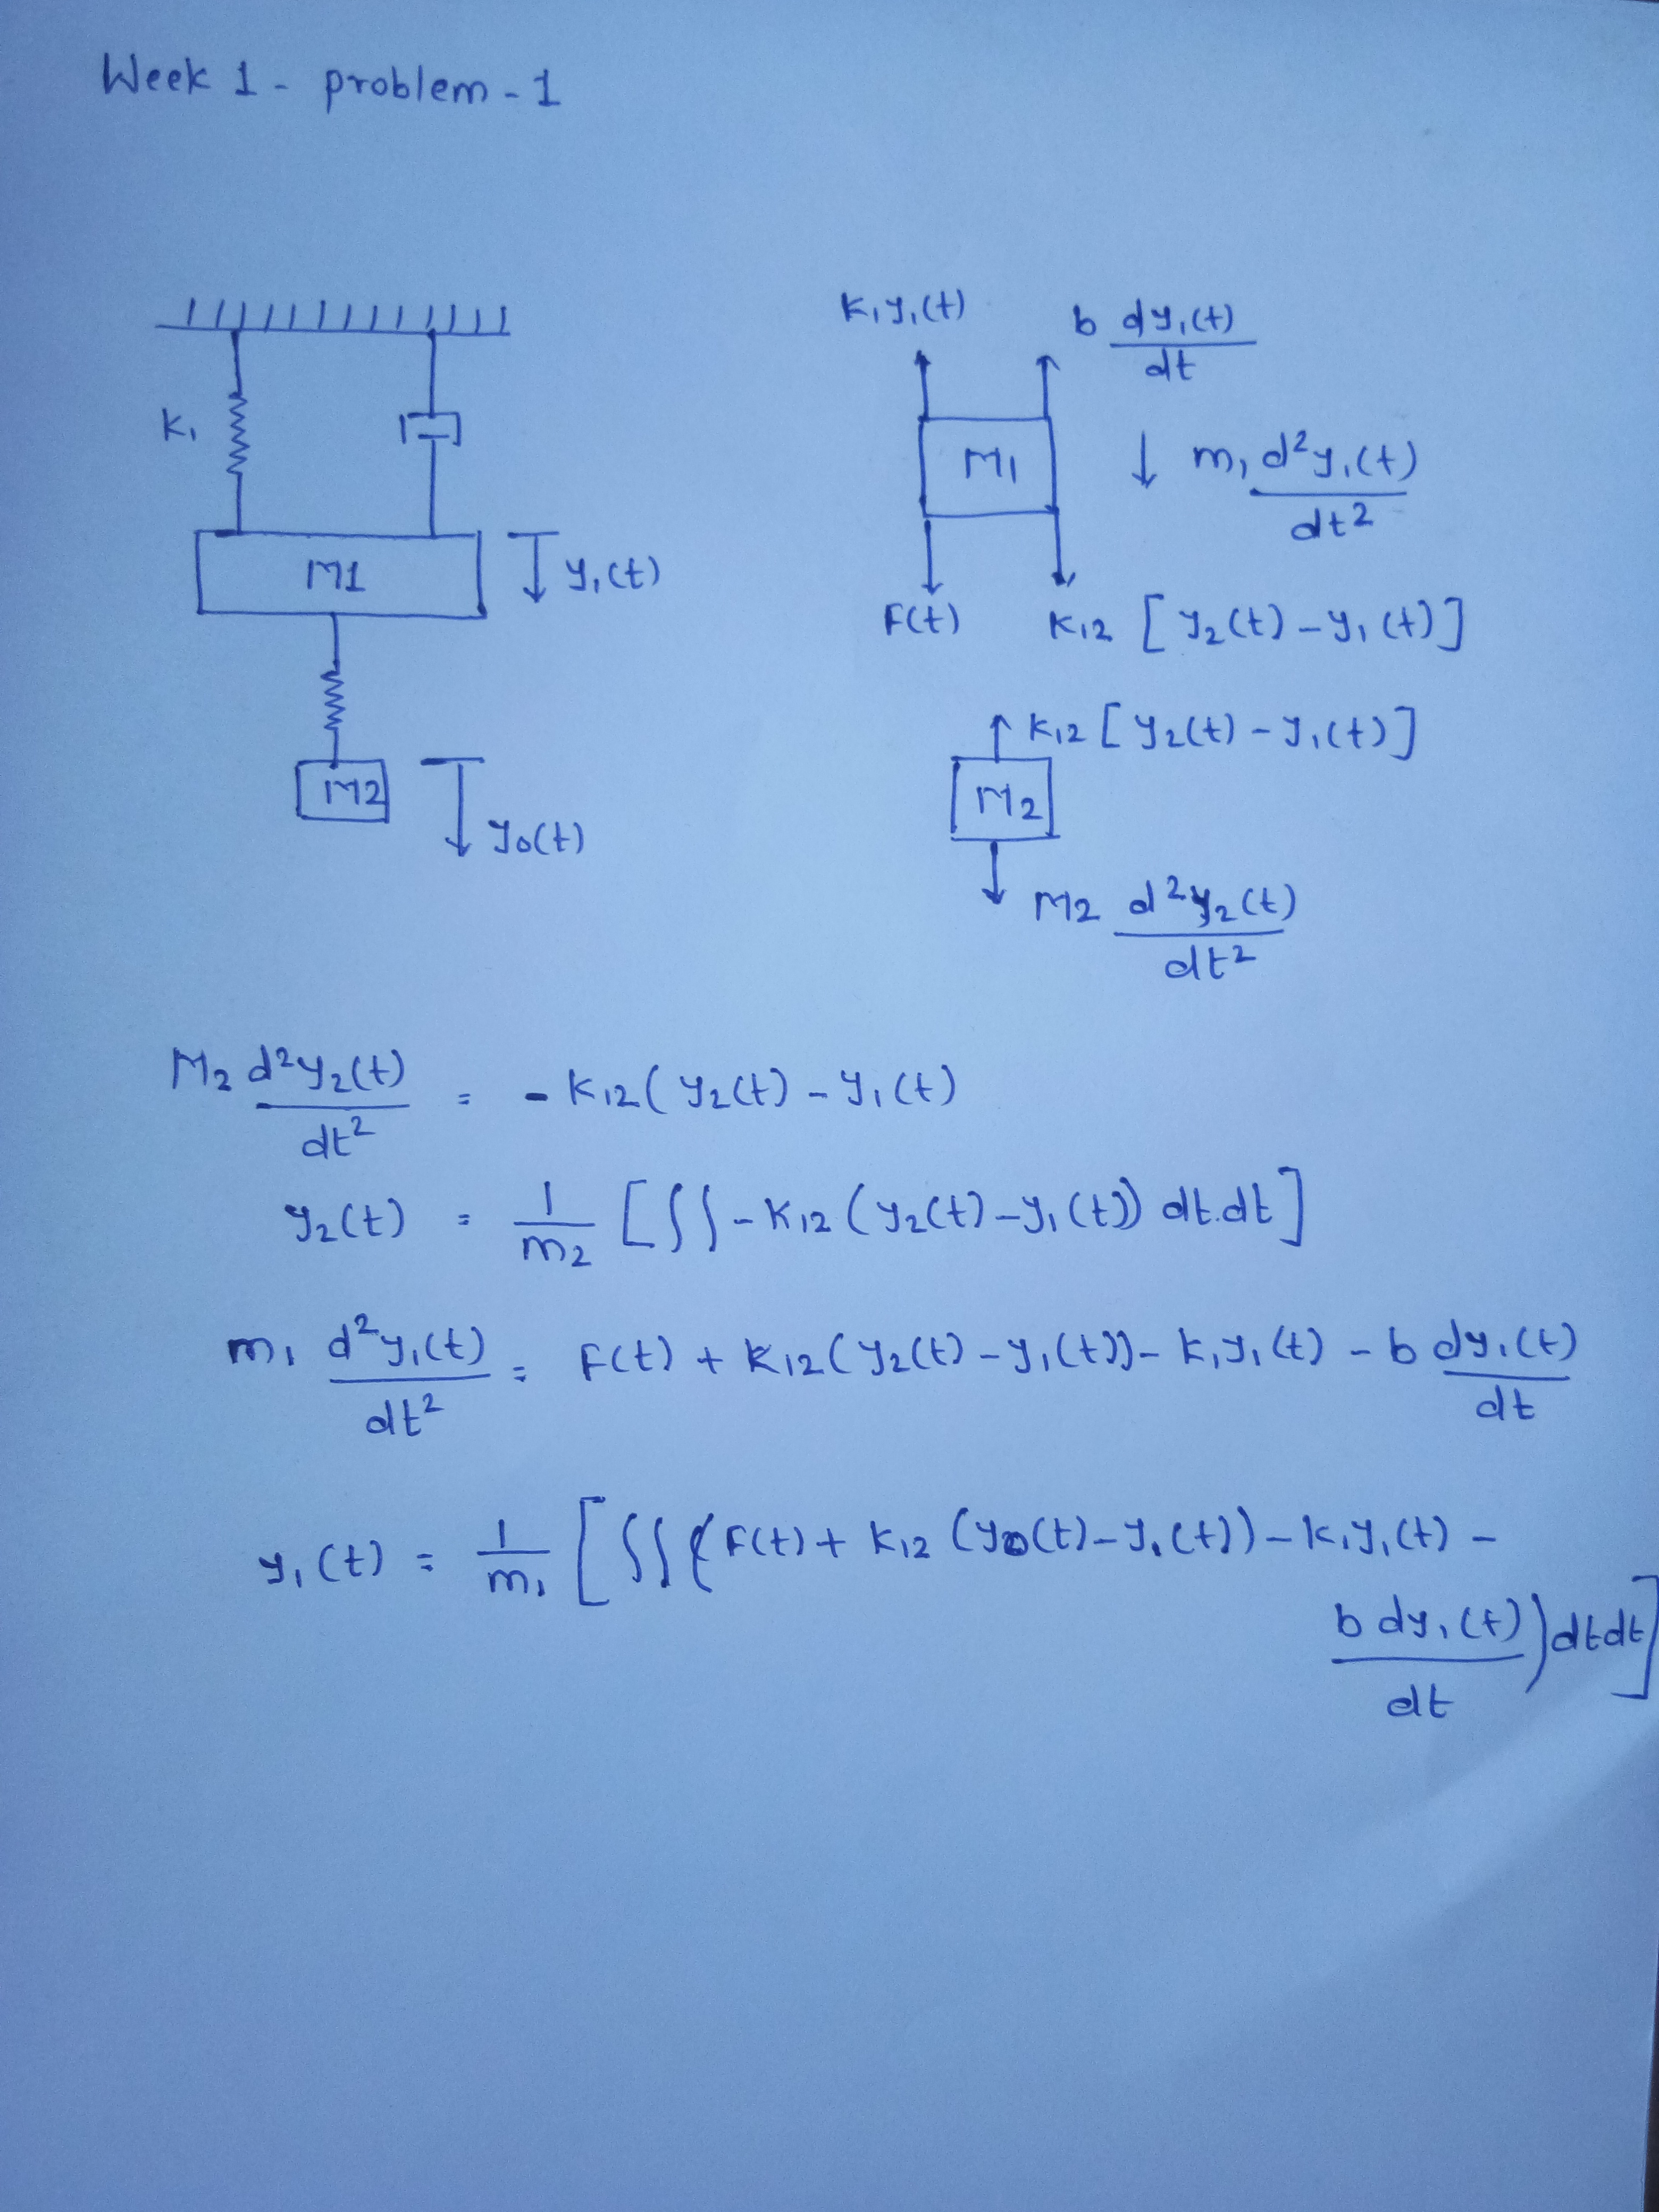 Week 1 - problem - 1
K₁
M1
y₁(t)
M2
y₀(t)
K₁y₁(t)
b dy₁(t)/dt
M₁
↓ m₁ d²y₁(t)/dt²
F(t)
K₁₂ [y₂(t) - y₁(t)]
K₁₂ [y₂(t) - y₁(t)]
M₂
M₂ d²y₂(t)/dt²
M₂ d²y₂(t)/dt² = - K₁₂(y₂(t) - y₁(t)
y₂(t) = 1/m₂ [∫∫ - K₁₂ (y₂(t) - y₁(t)) dt.dt]
m₁ d²y₁(t)/dt² = F(t) + K₁₂(y₂(t) - y₁(t)) - K₁y₁(t) - b dy₁(t)/dt
y₁(t) = 1/m₁ [∫∫ (F(t) + K₁₂ (y₀(t) - y₁(t)) - K₁y₁(t) -
b dy₁(t)/dt) dt dt]